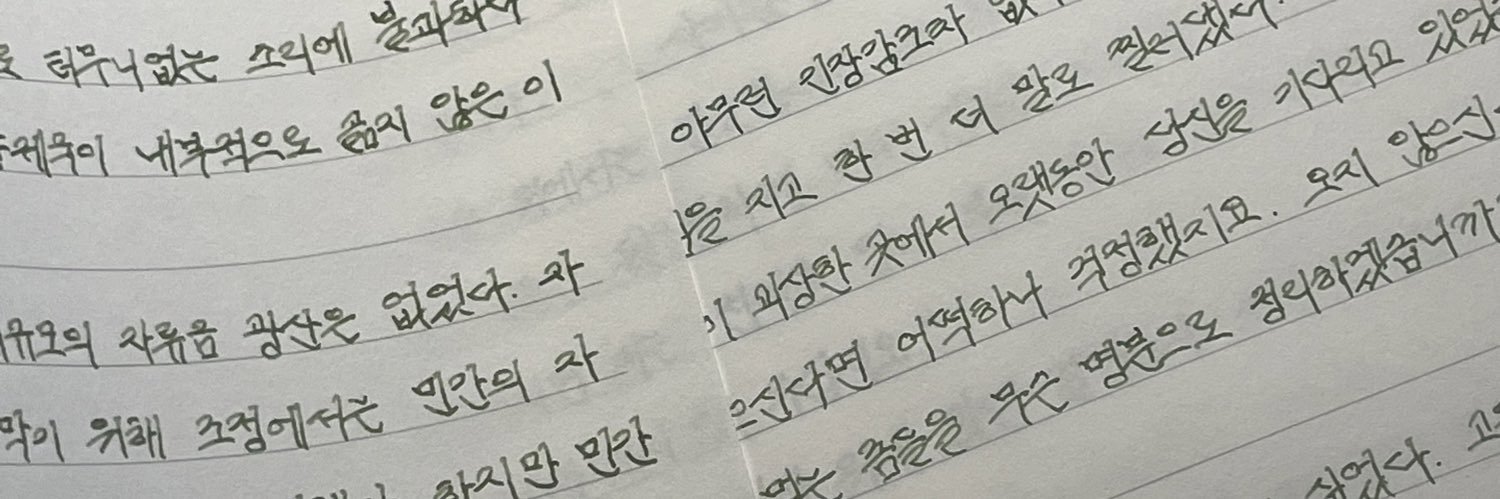 터무니없는 소리에 불과하
내부적으로 곪지 않은 이
규모의 자류음 광산은 없었다. 자
막기 위해 조정에서는 민간의 자
하지만 민간
아무런 긴장감조차 없
을 지고 한 번 더 말로 찔러냈다.
이 괴상한 곳에서 오랫동안 당신을 기다리고 있었
으신다면 어떡하나 걱정했지요. 오지 않으신
여는 죽음을 무슨 명분으로 정리하겠습니까
싶었다. 고